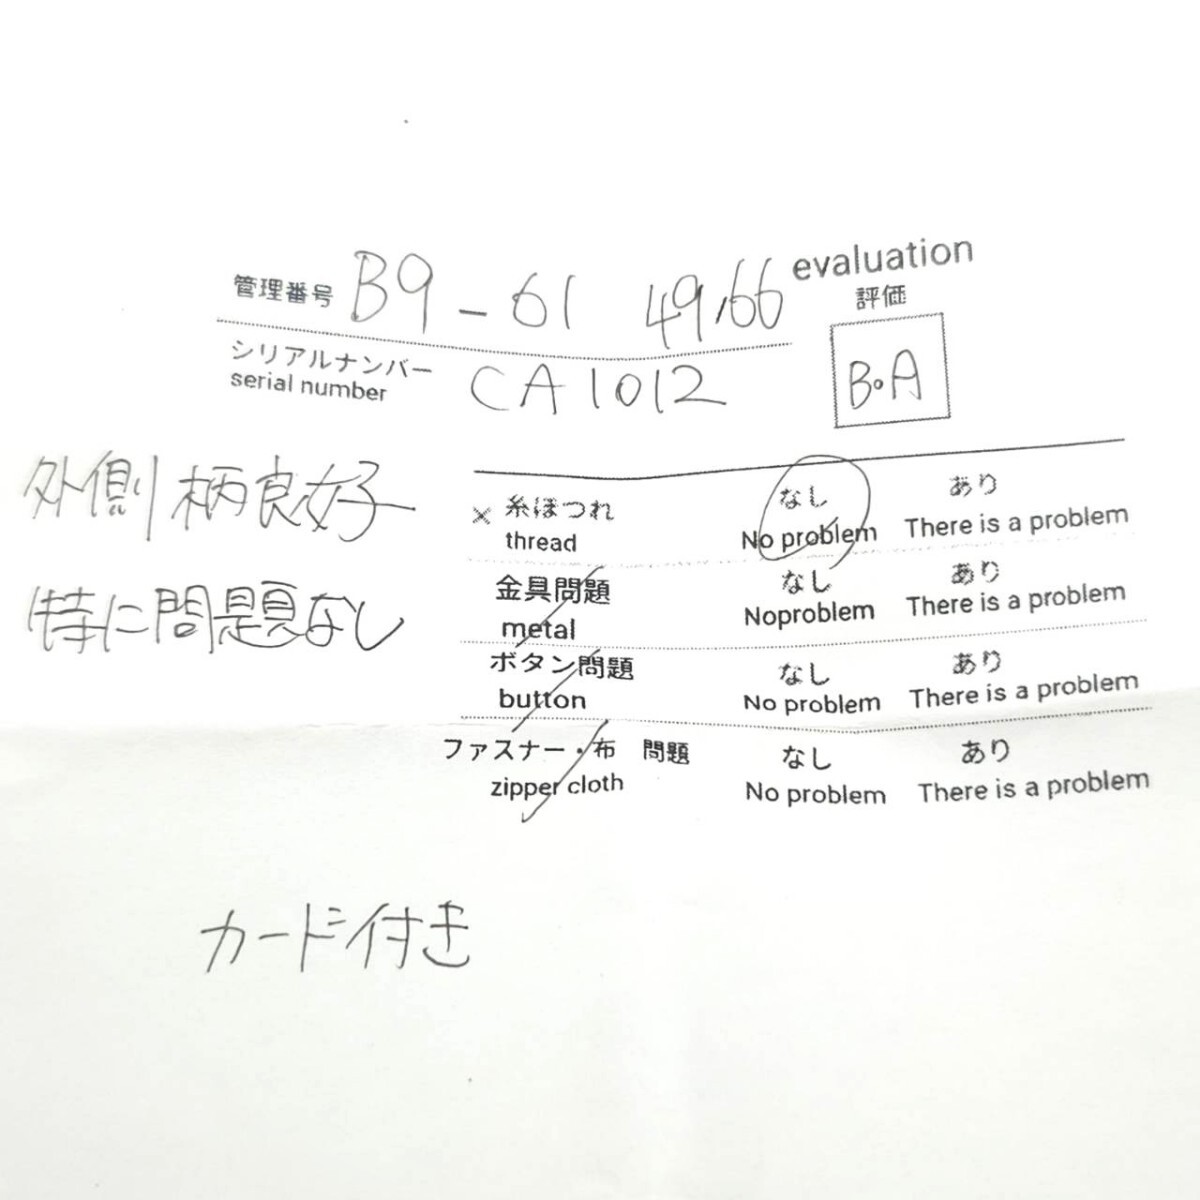 管理番号 B9-61 49.66
evaluation
評価
シリアルナンバー
serial number CA1012
B.A
外側柄良好
特に問題なし
× 糸ほつれ なし あり
thread No problem There is a problem
金具問題 なし あり
metal Noproblem There is a problem
ボタン問題 なし あり
button No problem There is a problem
ファスナー・布 問題 なし あり
zipper cloth No problem There is a problem
カード付き